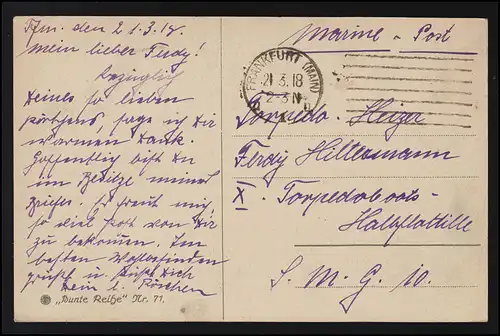 Ffm. den 21.3.18.
Mein lieber Ferdy!
Bezüglich
Deines so lieben
Kärtchens, sage ich Dir
warmen Dank.
Hoffentlich bist Du
im Besitze meines
Briefes. Es freut mich
so viel Post von Dir
zu bekommen. Im
besten Wohlbefinden
grüßt u. küßt Dich
Dein l. Röschen
„Bunte Reihe" Nr. 71.
Marine - Post
FRANKFURT (MAIN)
21.3.18
2-3 N
Torpedo-Heizer
Ferdy Hiltermann
X. Torpedoboots-
Halbflottille
S. M. G. 10.